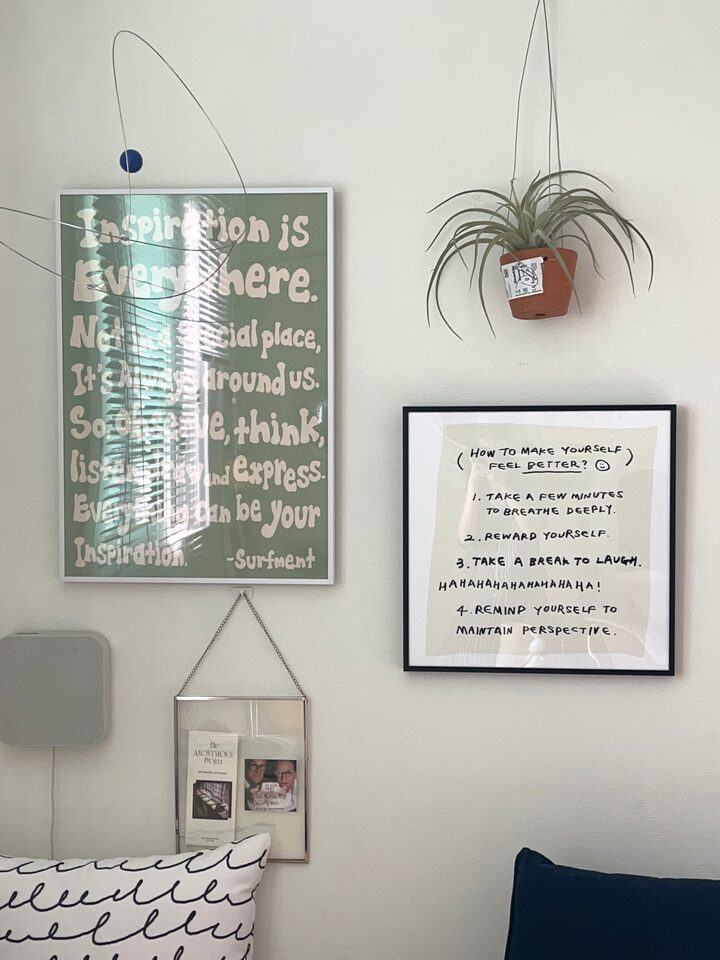 Inspiration is
Everywhere.
Not in a special place,
It's Always around us.
So, Observe, think,
listen, draw and express.
Everything can be your
Inspiration. -Surfment
(HOW TO MAKE YOURSELF
FEEL BETTER? )
1. TAKE A FEW MINUTES
TO BREATHE DEEPLY.
2. REWARD YOURSELF.
3. TAKE A BREAK TO LAUGH.
HAHAHAHAHAHAHAHAHA!
4. REMIND YOURSELF TO
MAINTAIN PERSPECTIVE.
The
ANONYMOUS
Project